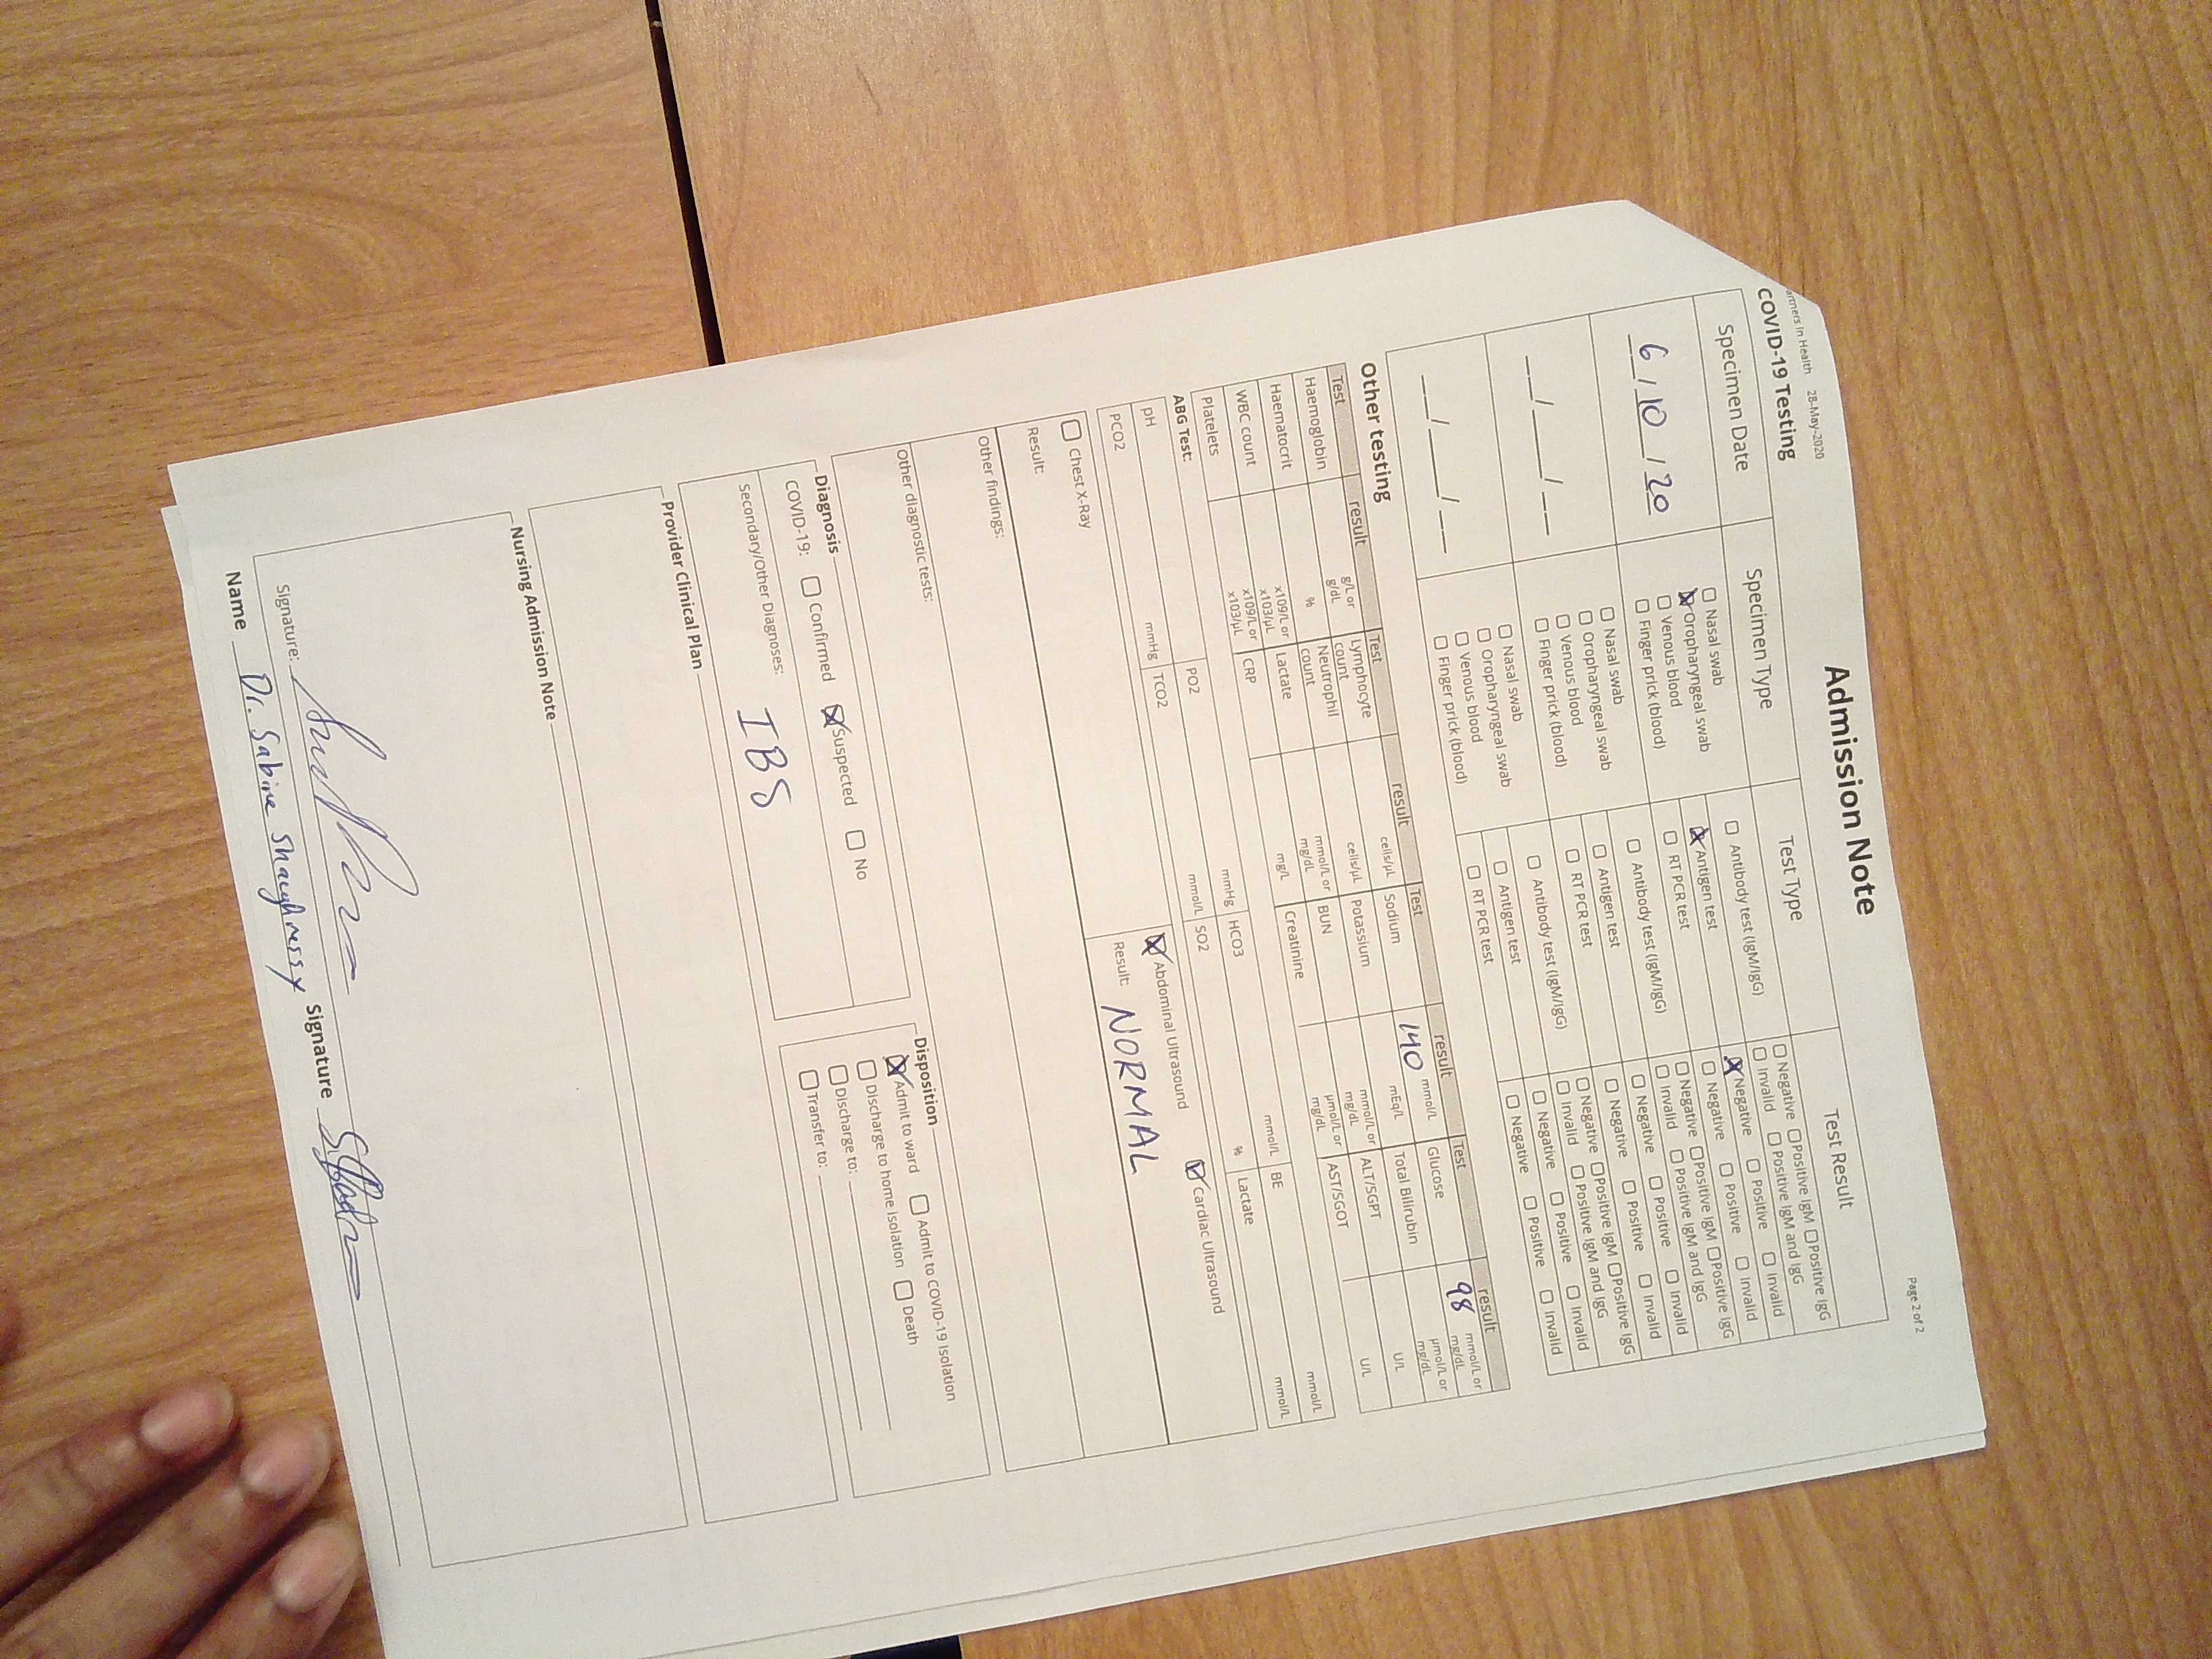 artners In Health 28-May-2020
Page 2 of 2
Admission Note
COVID-19 Testing
Specimen Date Specimen Type Test Type Test Result
6 / 10 / 20
☐ Nasal swab
☒ Oropharyngeal swab
☐ Venous blood
☐ Finger prick (blood)
☐ Antibody test (IgM/IgG)
☒ Antigen test
☐ RT PCR test
☐ Negative ☐ Positive IgM ☐ Positive IgG
☐ Invalid ☐ Positive IgM and IgG
☒ Negative ☐ Positive ☐ Invalid
☐ Negative ☐ Positive ☐ Invalid
__/___/__
☐ Nasal swab
☐ Oropharyngeal swab
☐ Venous blood
☐ Finger prick (blood)
☐ Antibody test (IgM/IgG)
☐ Antigen test
☐ RT PCR test
☐ Negative ☐ Positive IgM ☐ Positive IgG
☐ Invalid ☐ Positive IgM and IgG
☐ Negative ☐ Positive ☐ Invalid
☐ Negative ☐ Positive ☐ Invalid
__/___/__
☐ Nasal swab
☐ Oropharyngeal swab
☐ Venous blood
☐ Finger prick (blood)
☐ Antibody test (IgM/IgG)
☐ Antigen test
☐ RT PCR test
☐ Negative ☐ Positive IgM ☐ Positive IgG
☐ Invalid ☐ Positive IgM and IgG
☐ Negative ☐ Positive ☐ Invalid
☐ Negative ☐ Positive ☐ Invalid
Other testing
Test result Test result Test result Test result
Haemoglobin g/L or g/dL Lymphocyte count cells/µL Sodium 140 mmol/L mEq/L Glucose 98 mmol/L or mg/dL
Haematocrit % Neutrophil count cells/µL Potassium mmol/L or mg/dL Total Bilirubin µmol/L or mg/dL
WBC count x109/L or x103/µL Lactate mmol/L or mg/dL BUN µmol/L or mg/dL ALT/SGPT U/L
Platelets x109/L or x103/µL CRP mg/L Creatinine AST/SGOT U/L
ABG Test:
pH PO2 mmHg HCO3 mmol/L BE mmol/L
PCO2 mmHg TCO2 mmol/L SO2 % Lactate mmol/L
☐ Chest X-Ray ☒ Abdominal Ultrasound ☒ Cardiac Ultrasound
Result: Result: NORMAL
Other findings:
Other diagnostic tests:
Diagnosis
COVID-19: ☐ Confirmed ☒ Suspected ☐ No
Secondary/Other Diagnoses: IBS
Disposition
☒ Admit to ward ☐ Admit to COVID-19 Isolation
☐ Discharge to home Isolation ☐ Death
☐ Discharge to:
☐ Transfer to:
Provider Clinical Plan
Nursing Admission Note
Signature:
Name Dr. Sabine Shaughnessy Signature